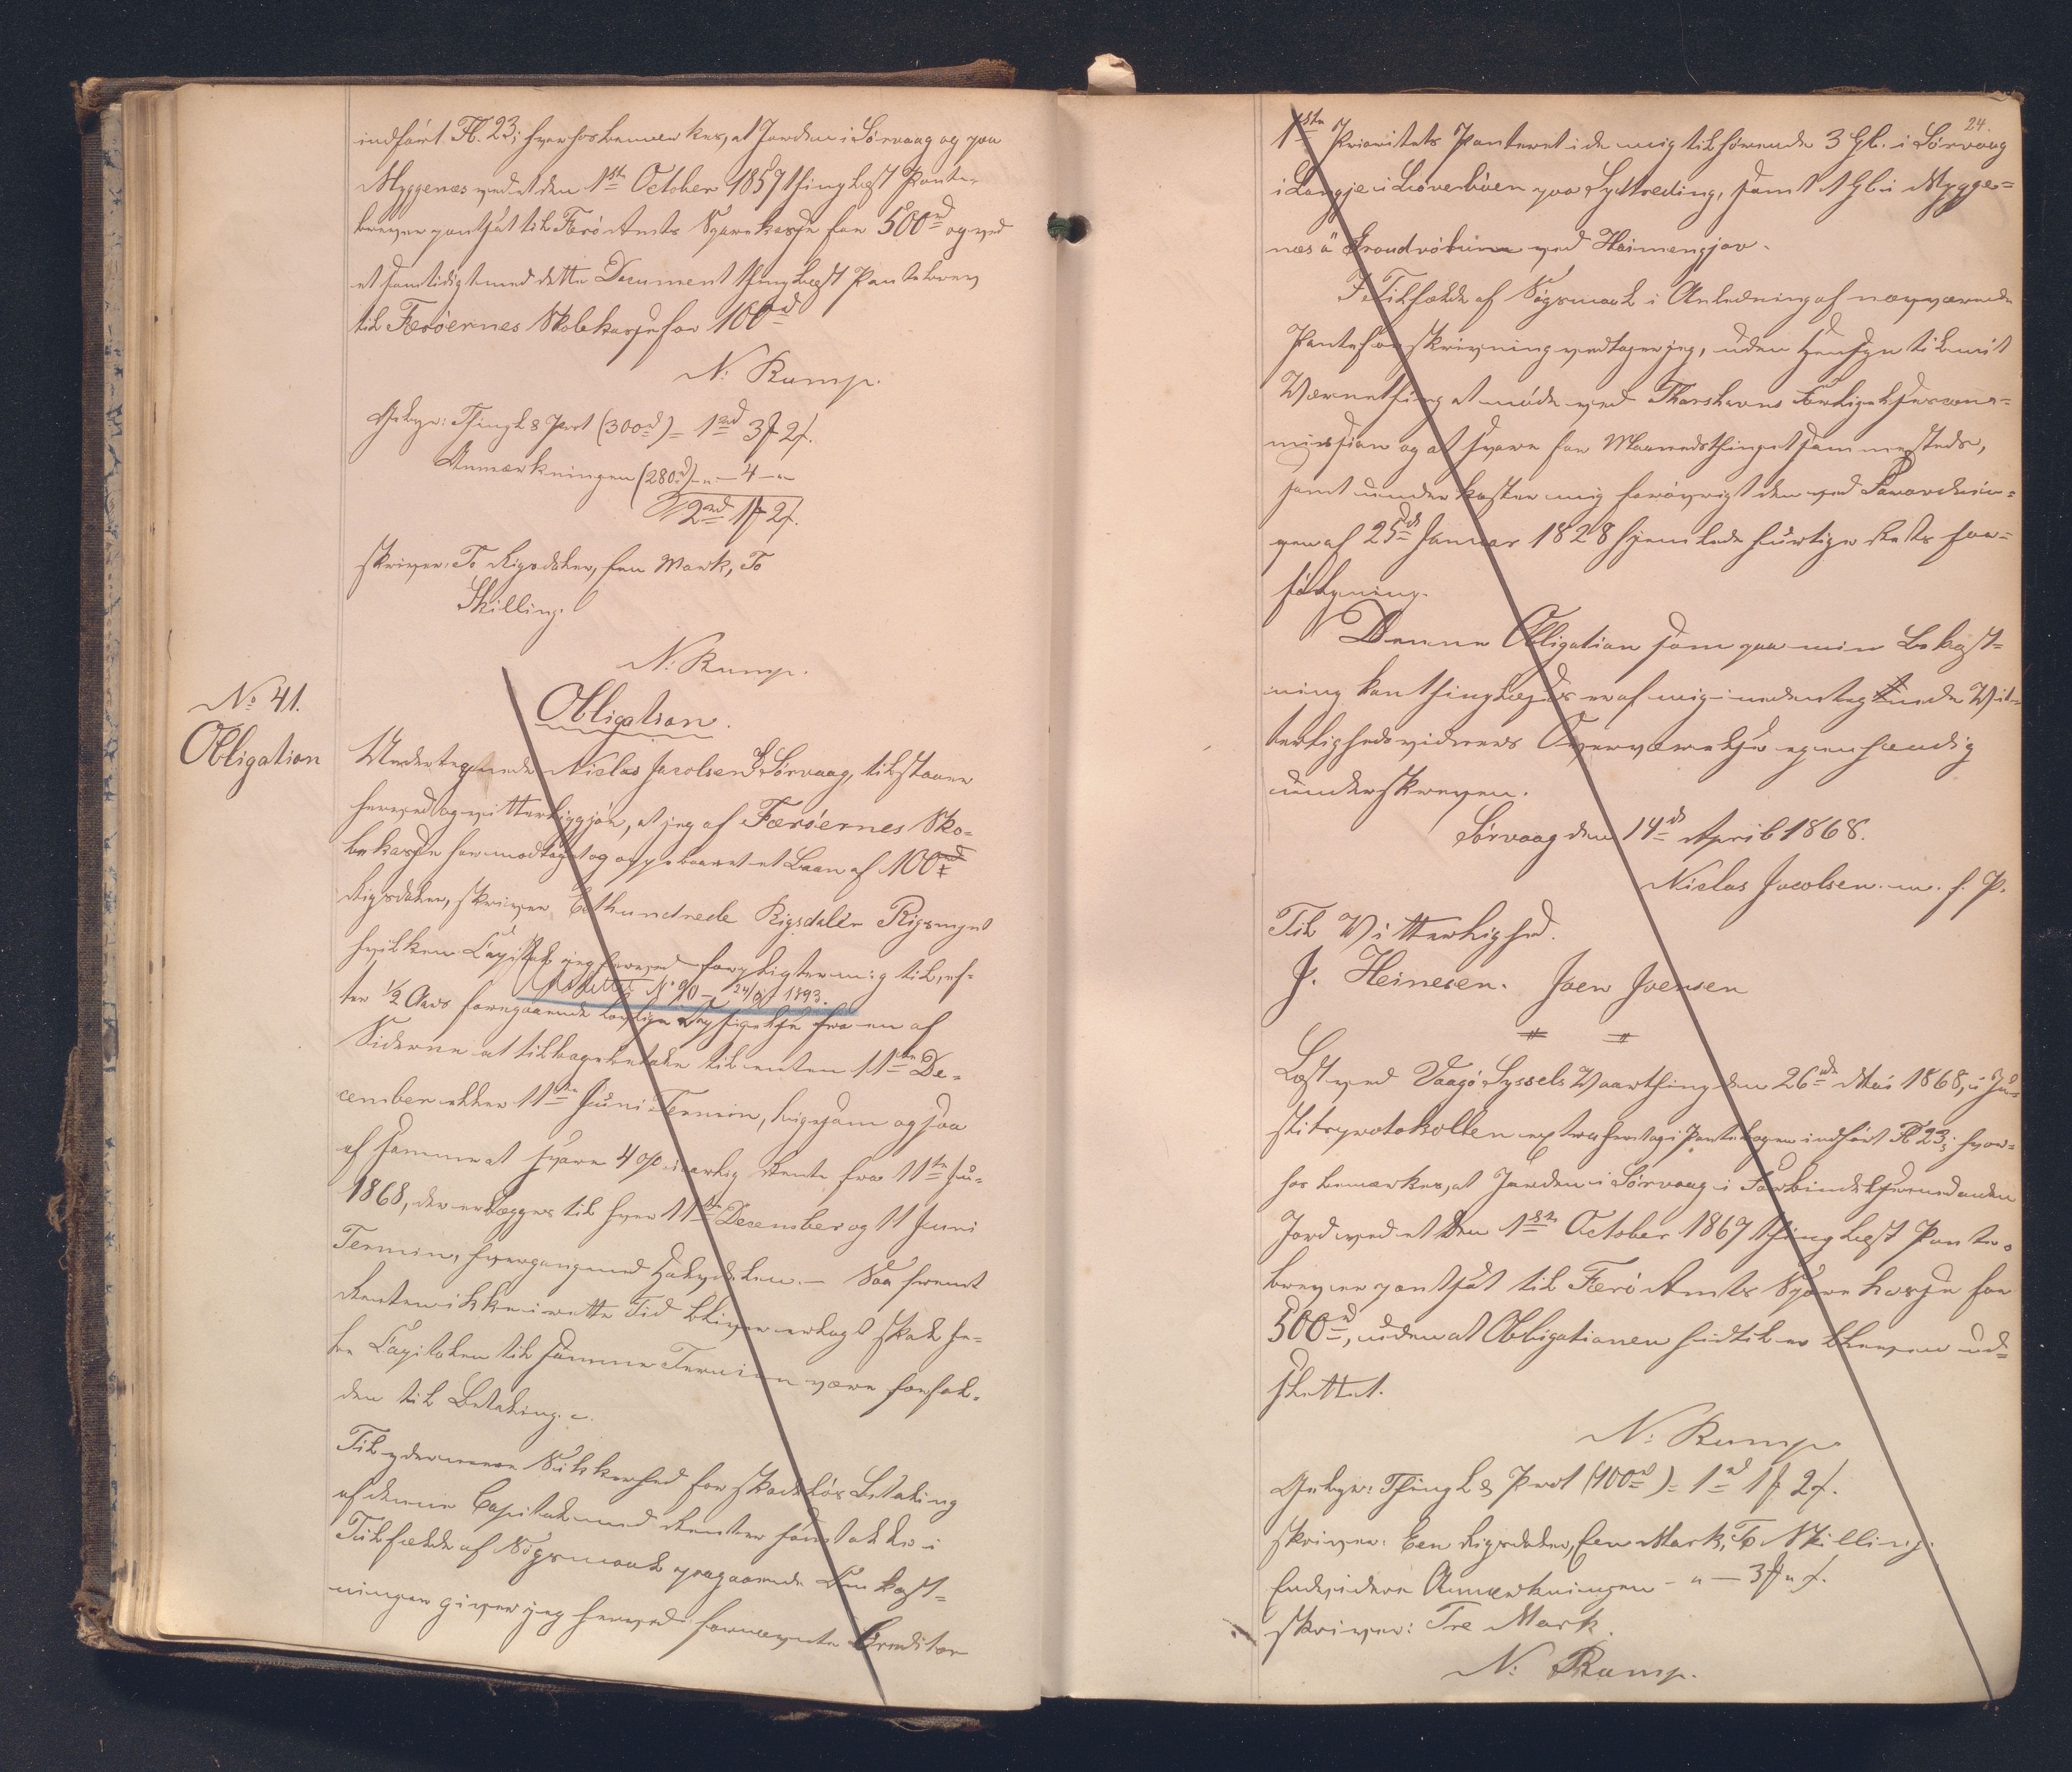 indført Fl. 23; hvorhos bemærkes, at Jorden i Sørvaag og paa
Myggenæs ved et den 1ste October 1857 thinglæst Pante-
brev er pantsat til Færø Amts Sparekasse for 500rd og ved
et samtidigt med dette Document thinglæst Pantebrev
til Færøernes Skolekasse for 100rd
N. Rump.
Gebyr: Thingl & Prot (300rd) = 1rd 3 # 2 /.
Anmærkningen (280rd) - " - 4 - "
2rd 1 # 2 /.
skriver: To Rigsdaler, Een Mark, To
Skilling.
N. Rump.
No 41.
Obligation
Obligation.
Undertegnede Niclas Jacobsen Sørvaag, tilstaaer
herved og vitterliggjør, at jeg af Færøernes Sko-
lekasse har modtaget og oppebaaret et Laan af 100
Rigsdaler, skriver Eethundrede Rigsdaler Rigsmynt
hvilken Capital jeg herved forpligter mig til, ef-
Udslettet No 90 - 24/ 1893.
ter 1/2 Aars foregaaende lovlige Opsigelse fra en af
Siderne at tilbagebetale til enten 11te De-
cember eller 11te Juni Termin, ligesom og saa
af samme at svare 4 op aarlig Rente fra 11te Ju-
1868, der erlægges til hver 11te December og 11 Juni
Termin, hvergang med Halvdelen. - Saafremt
Renten ikke i rette Tid bliver erlagt skal he-
le Capitalen til samme Termin være forfal-
den til Betaling. -
Til ydermere Sikkerhed for skadesløs Betaling
af denne Capital med Renter samt alle i
Tilfælde af Søgsmaal paagaaende Omkost-
ninger giver jeg herved fornævnte Creditor
24.
1ste Prioritets Panteret i de mig tilhørende 3 Gl. i Sørvaag
i Langje i Løverbøen paa Sydtreding, samt 1 Gl i Mygge-
næs ved Heimengjov.
I Tilfælde af Søgsmaal i Anledning af nærværende
Panteforskrivning vedtager jeg, uden Hensyn til mit
Værnething at møde ved Thorshavns Forligelsescom-
mission og at svare for Maanedsthinget sammesteds,
samt underkaster mig forøvrigt den ved Forordnin-
gen af 25de Januar 1828 hjemlede hurtige Rets for-
følgning.
Denne Obligation som paa min Bekost-
ning kan thinglæses er af mig i undertegnede Vit-
terlighedsvidners Overværelse egenhændig
underskreven.
Sørvaag den 14d April 1868.
Niclas Jacobsen. m. f. P.
Til Vitterlighed.
J. Heinesen. Joen Joensen
Læst ved Vaagø Syssels Vaarthing den 26de Mai 1868, i Ju-
stitsprotokollen extraheret og i Pantebogen indført Fl 23; hvor-
hos bemærkes, at Jorden i Sørvaag i Forbindelse med anden
Jord ved et den 1ste October 1867 thinglæst Pante-
brev er pantsat til Færø Amts Sparekasse for
500rd, uden at Obligationen hidtil er bleven ud-
slettet.
N. Rump
Gebyr: Thingl & Prot (100rd) = 1rd 1 # 2 /.
skriver: Een Rigsdaler, Een Mark, To Skilling.
Endvidere Anmærkningen - " - 3 # " /.
skriver: Tre Mark.
N. Rump.